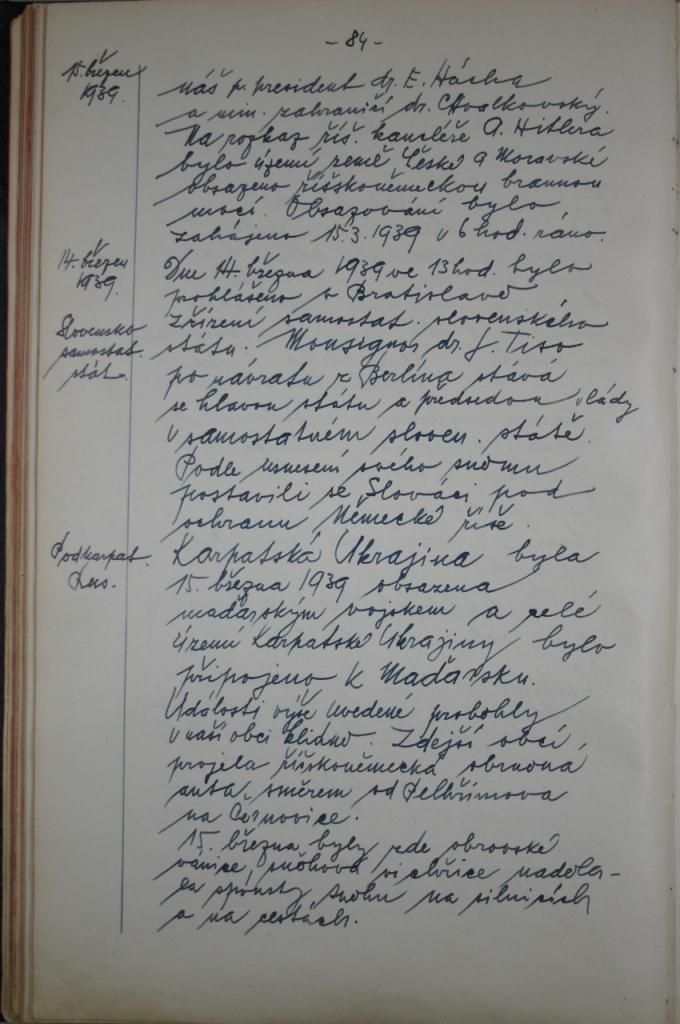 - 84 -
15. březen
1939.
náš p. president dr. E. Hácha
a min. zahraničí dr. Chvalkovský.
Na rozkaz říš. kancléře A. Hitlera
bylo území země České a Moravské
obsazeno říšskoněmeckou brannou
mocí. Obsazování bylo
zahájeno 15.3.1939 v 6 hod. ráno.
14. březen
1939.
Dne 14. března 1939 ve 13 hod. bylo
prohlášeno v Bratislavě
Slovensko
samostat.
stát.
zřízení samostat. slovenského
státu. Monsignor dr. J. Tiso
po návratu z Berlína stává
se hlavou státu a předsedou vlády
v samostatném sloven. státě.
Podle usnesení svého sněmu
postavili se Slováci pod
ochranu Německé říše.
Podkarpat.
Rus.
Karpatská Ukrajina byla
15. března 1939 obsazena
maďarským vojskem a celé
území Karpatské Ukrajiny bylo
připojeno k Maďarsku.
Události výše uvedené proběhly
v naší obci klidně. Zdejší obcí
projela říškoněmecká obrněná
auta směrem od Pelhřimova
na Černovice.
15. března byly zde obrovské
vánice, sněhová vichřice naděla-
la spousty sněhu na silnicích
a na cestách.